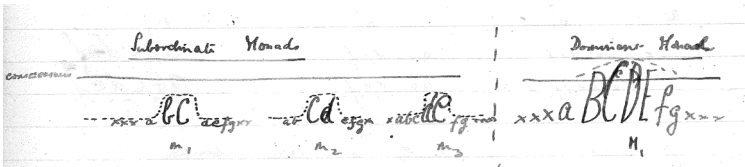 Subordinate Monads Dominant Monad
consciousness
xxx a bC aefgxx ab Cd efgx xabc dC fgxxx xxxa BCDE fgxxx
m₁ m₂ m₃ M₁